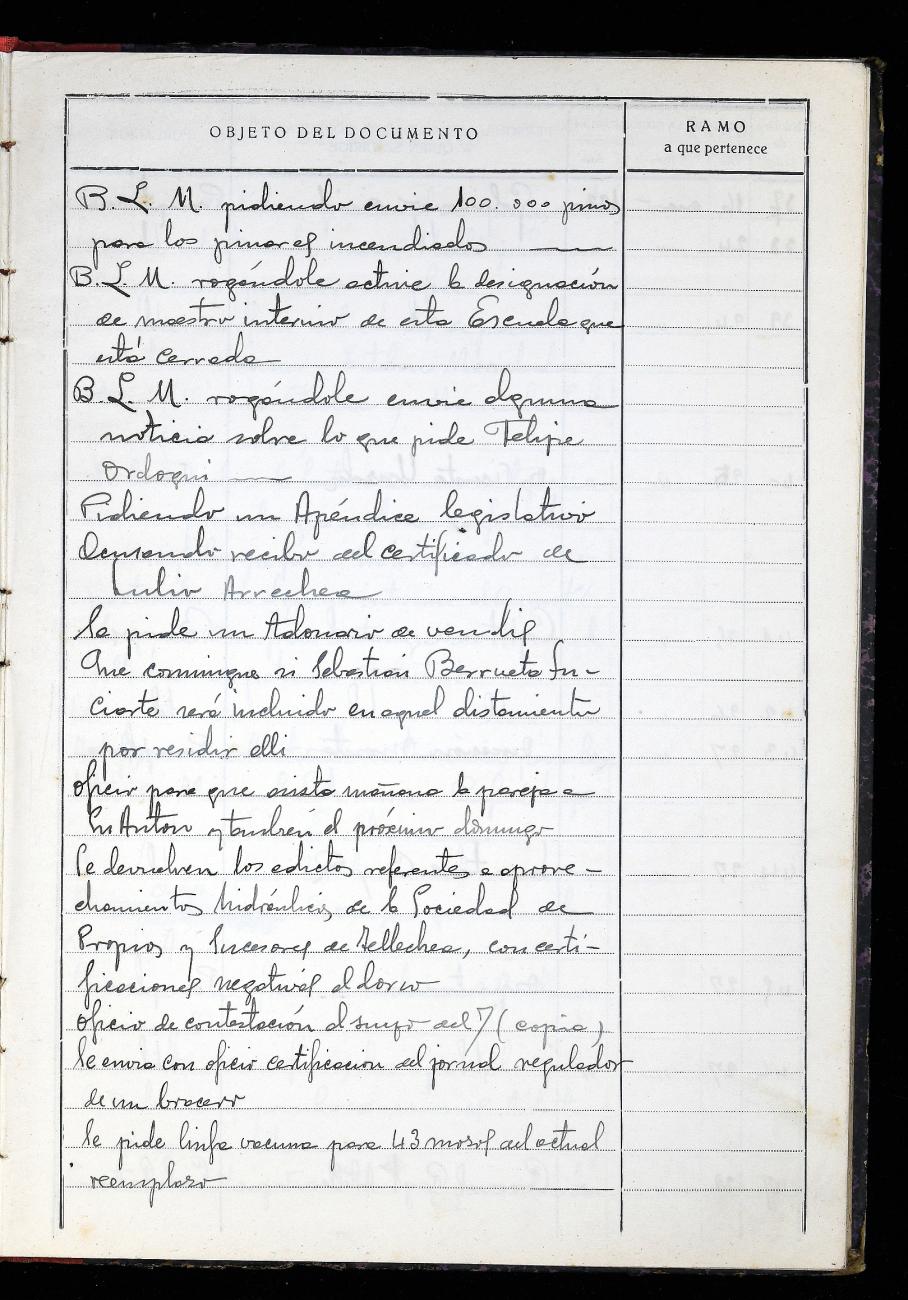 OBJETO DEL DOCUMENTO
RAMO
a que pertenece
B. L. M. pidiendo envie 100.000 pinos
para los pinares incendiados
B. L. M. rogándole active la designación
de maestro interino de esta Escuela que
está cerrada
B. L. M. rogándole envie alguna
noticia sobre lo que pide Felipe
Ordoqui
Pidiendo un Apéndice legislativo
Acusando recibo del certificado de
Julio Arrechea
Se pide un Talonario de vendis
Que comunique si Sebastián Berrueta In-
ciarte será incluido en aquel alistamiento
por residir alli
Oficio para que asista mañana la pareja a
Sn Anton y tambien el próximo domingo
Se devuelven los edictos referentes a aprove-
chamientos hidráulicos de la Sociedad de
Propios y Sucesores de Tellechea, con certi-
ficaciones negativas al dorso
Oficio de contestación al suyo del 7 (copia)
Se envia con oficio certificacion del jornal regulador
de un bracero
Se pide linfa vacuna para 43 mozos del actual
reemplazo